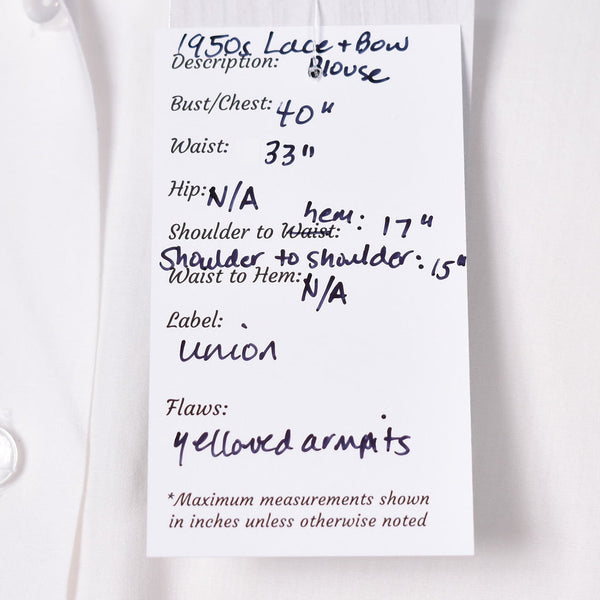 1950s Lace + Bow
Description: Blouse
Bust/Chest: 40"
Waist: 33"
Hip: N/A
hem:
Shoulder to Waist: 17"
Shoulder to shoulder: 15"
Waist to Hem: N/A
Label:
union
Flaws:
yellowed armpits
*Maximum measurements shown
in inches unless otherwise noted